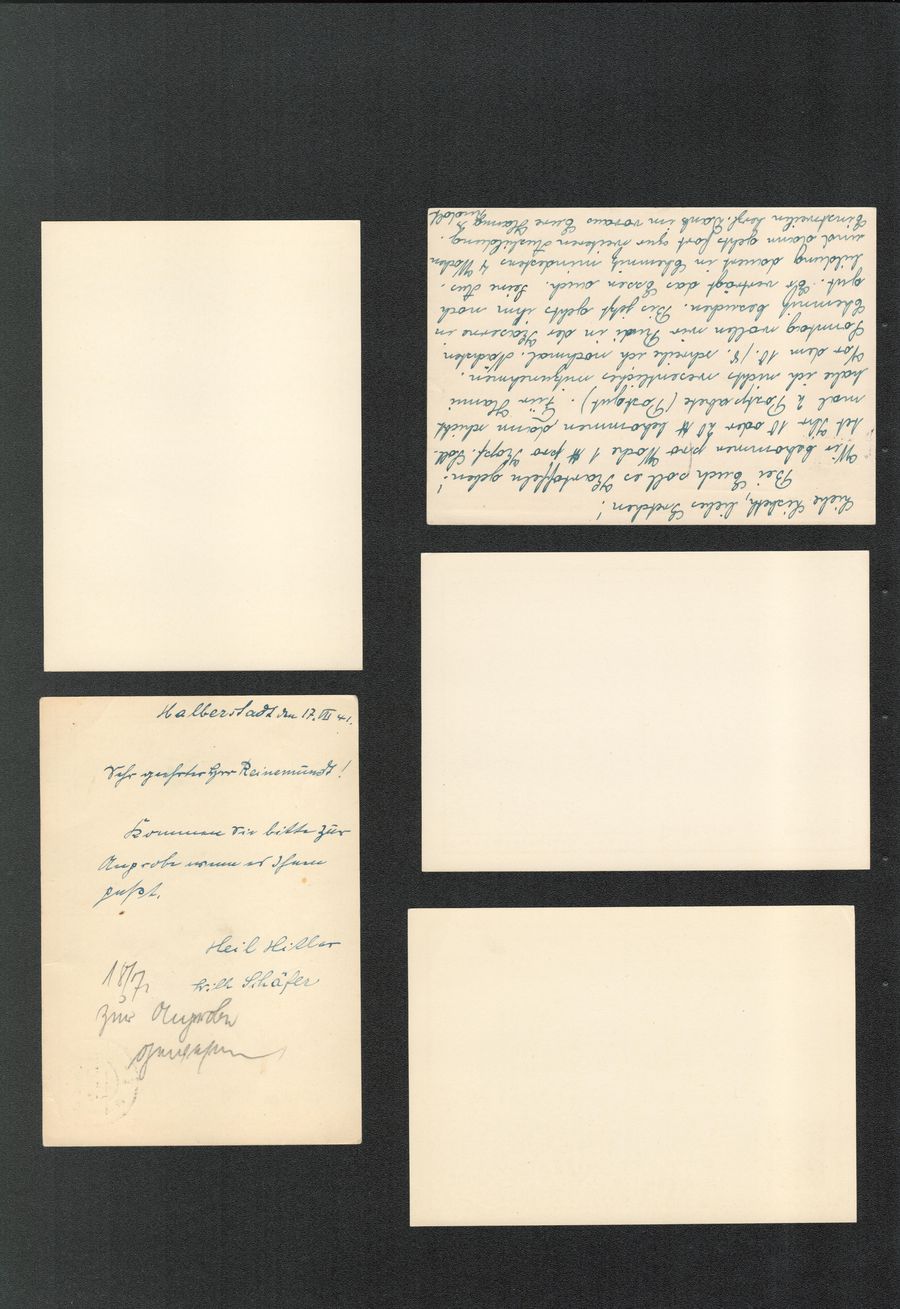 Liebe Lisbeth, liebes Gretchen!
Bei Euch soll es Kartoffeln geben!
Wir bekommen pro Woche 1 ℔ pro Kopf. Soll-
tet Ihr 10 oder 20 ℔ bekommen dann schickt
mal 2 Postpakete (Postgut). Für Hanni
habe ich nichts wesentliches mitzunehmen.
Vor dem 10./8. schreibe ich nochmal. Nächsten
Sonntag wollen wir Rudi in der Kaserne in
Chemnitz besuchen. Bis jetzt gehts ihm noch
gut. Er verträgt das Essen auch. Seine Aus-
bildung dauert in Chemnitz mindestens 4 Wochen
und dann gehts fort zur weiteren Ausbildung.
Einstweilen herzl. Dank im voraus Eure Hanna &
Rudolf
Halberstadt den 17. VII 41.
Sehr geehrter Herr Reinemundt!
Kommen Sie bitte zur
Anprobe wenn es Ihnen
paßt.
Heil Hitler
Wilh Schäfer
18/7.
zur Anprobe
gewesen